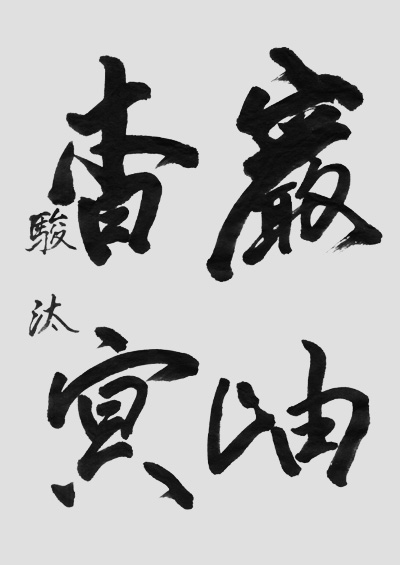 巖岫
杳冥
駿汰